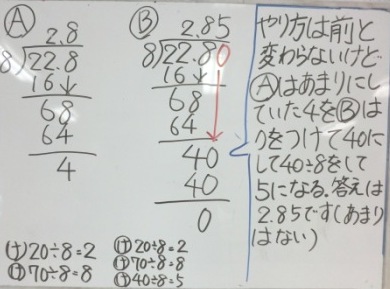 Ⓐ
2.8
8)22.8
16↓
68
64
4
け20÷8=2
け70÷8=8
Ⓑ
2.85
8)22.80
16↓
68
64
40
40
0
け20÷8=2
け70÷8=8
け40÷8=5
やり方は前と
変わらないけど
Ⓐはあまりにし
ていた4をⒷは
0をつけて40に
して40÷8をして
5になる。答えは
2.85です(あまり
はない)